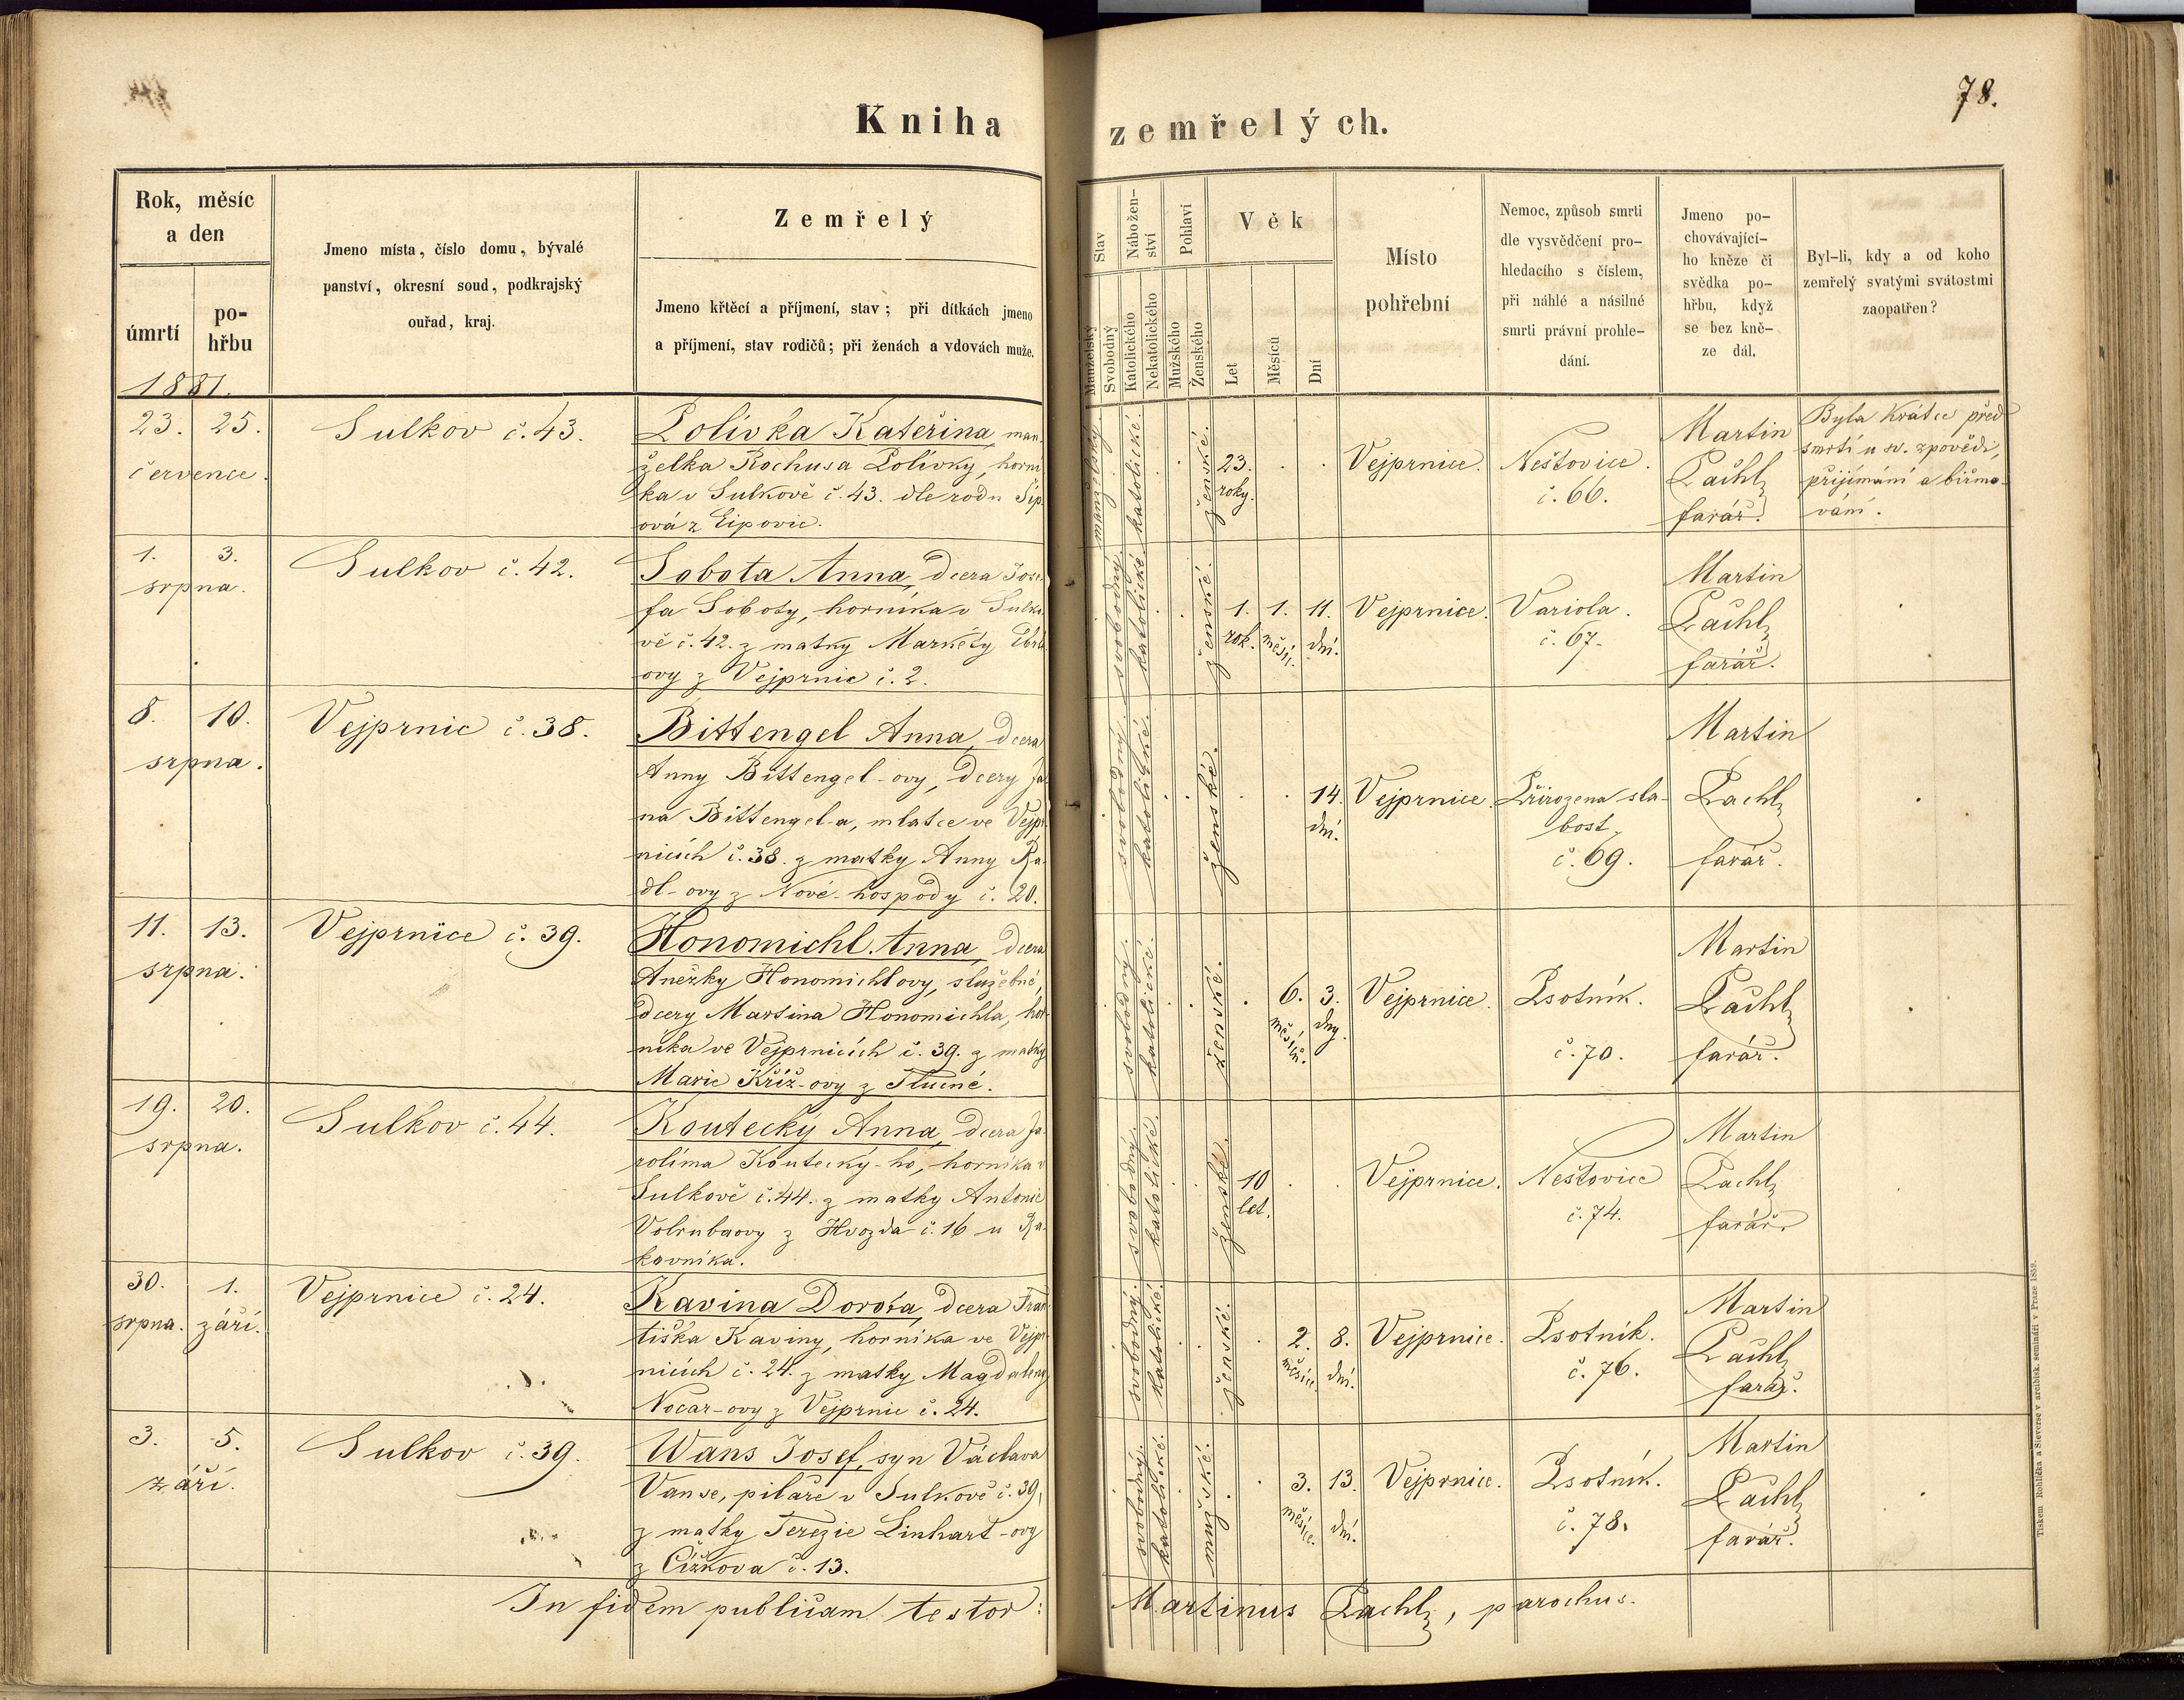 78.
Kniha zemřelých.
Rok, měsíc
a den
úmrtí
po-
hřbu
1881.
Jmeno místa, číslo domu, bývalé
panství, okresní soud, podkrajský
ouřad, kraj.
Zemřelý
Jmeno křtěcí a příjmení, stav; při dítkách jmeno
a příjmení, stav rodičů; při ženách a vdovách muže.
Stav
Manželský
Svobodný
Nábožen-
ství
Katolického
Nekatolického
Pohlaví
Mužského
Ženského
Věk
Let
Měsíců
Dní
Místo
pohřební
Nemoc, způsob smrti
dle vysvědčení pro-
hledacího s číslem,
při náhlé a násilné
smrti právní prohle-
dání.
Jmeno po-
chovávající-
ho kněze či
svědka po-
hřbu, když
se bez kně-
ze dál.
Byl-li, kdy a od koho
zemřelý svatými svátostmi
zaopatřen?
23. 25.
července.
Sulkov č. 43.
Polívka Kateřina, man-
želka Rochusa Polívky, horní-
ka v Sulkově č. 43. dle rodu
ová z Lipovic.
manželský.
katolické.
ženské.
23.
roky.
Vejprnice.
Neštovice.
č. 66.
Martin
Pachl,
farář.
Byla krátce před
smrtí u sv. zpovědi,
přijímání a biřmo-
vání.
1. 3.
srpna.
Sulkov č. 42.
Sobota Anna, dcera Jose-
fa Soboty, horníka v Sulko-
vě č. 42. z matky Markéty
ovy z Vejprnic č. 2.
svobodný.
katolické.
ženské.
1. 1. 11.
rok. měsíc. dní.
Vejprnice.
Variola.
č. 67.
Martin
Pachl,
farář.
8. 10.
srpna.
Vejprnic č. 38.
Bittengel Anna, dcera
Anny Bittengel-ovy, dcery Ja-
na Bittengel-a, mlatce ve Vejpr-
nicích č. 38. z matky Anny Ra-
dl-ovy z Nové hospody č. 20.
svobodný.
katolické.
ženské.
14.
dní.
Vejprnice.
Přirozena sla-
bost.
č. 69.
Martin
Pachl,
farář.
11. 13.
srpna.
Vejprnice č. 39.
Honomichl Anna, dcera
Anežky Honomichlovy, služebné,
dcery Martina Honomichla, hor-
níka ve Vejprnicích č. 39. z matky
Marie Kříž-ovy z Tlučné.
svobodný.
katolické.
ženské.
6. 3.
měsíců. dny.
Vejprnice.
Psotník.
č. 70.
Martin
Pachl,
farář.
19. 20.
srpna.
Sulkov č. 44.
Koutecký Anna, dcera Ja-
rolíma Koutecký-ho, horníka v
Sulkově č. 44. z matky Antonie
Volrubaovy z Hvozda č. 16 u Ra-
kovníka.
svobodný.
katolické.
ženské.
10
let.
Vejprnice.
Neštovice
č. 74.
Martin
Pachl,
farář.
30. 1.
srpna. září.
Vejprnice č. 24.
Kavina Dorota, dcera Fran-
tiška Kaviny, horníka ve Vejpr-
nicích č. 24. z matky Magdaleny
Nocar-ovy z Vejprnic č. 24.
svobodný.
katolické.
ženské.
2. 8.
měsíce. dní.
Vejprnice.
Psotník.
č. 76.
Martin
Pachl,
farář.
3. 5.
září.
Sulkov č. 39.
Wans Josef, syn Václava
Vanse, pilaře v Sulkově č. 39,
z matky Terezie Linhart-ovy
z Čížkova č. 13.
svobodný.
katolické.
mužské.
3. 13.
měsíce. dní.
Vejprnice.
Psotník.
č. 78.
Martin
Pachl,
farář.
In fidem publicam testor: Martinus Pachl, parochus.
Tiskem Rohlíčka a Sieverse v arcibisk. semináři v Praze 1859.